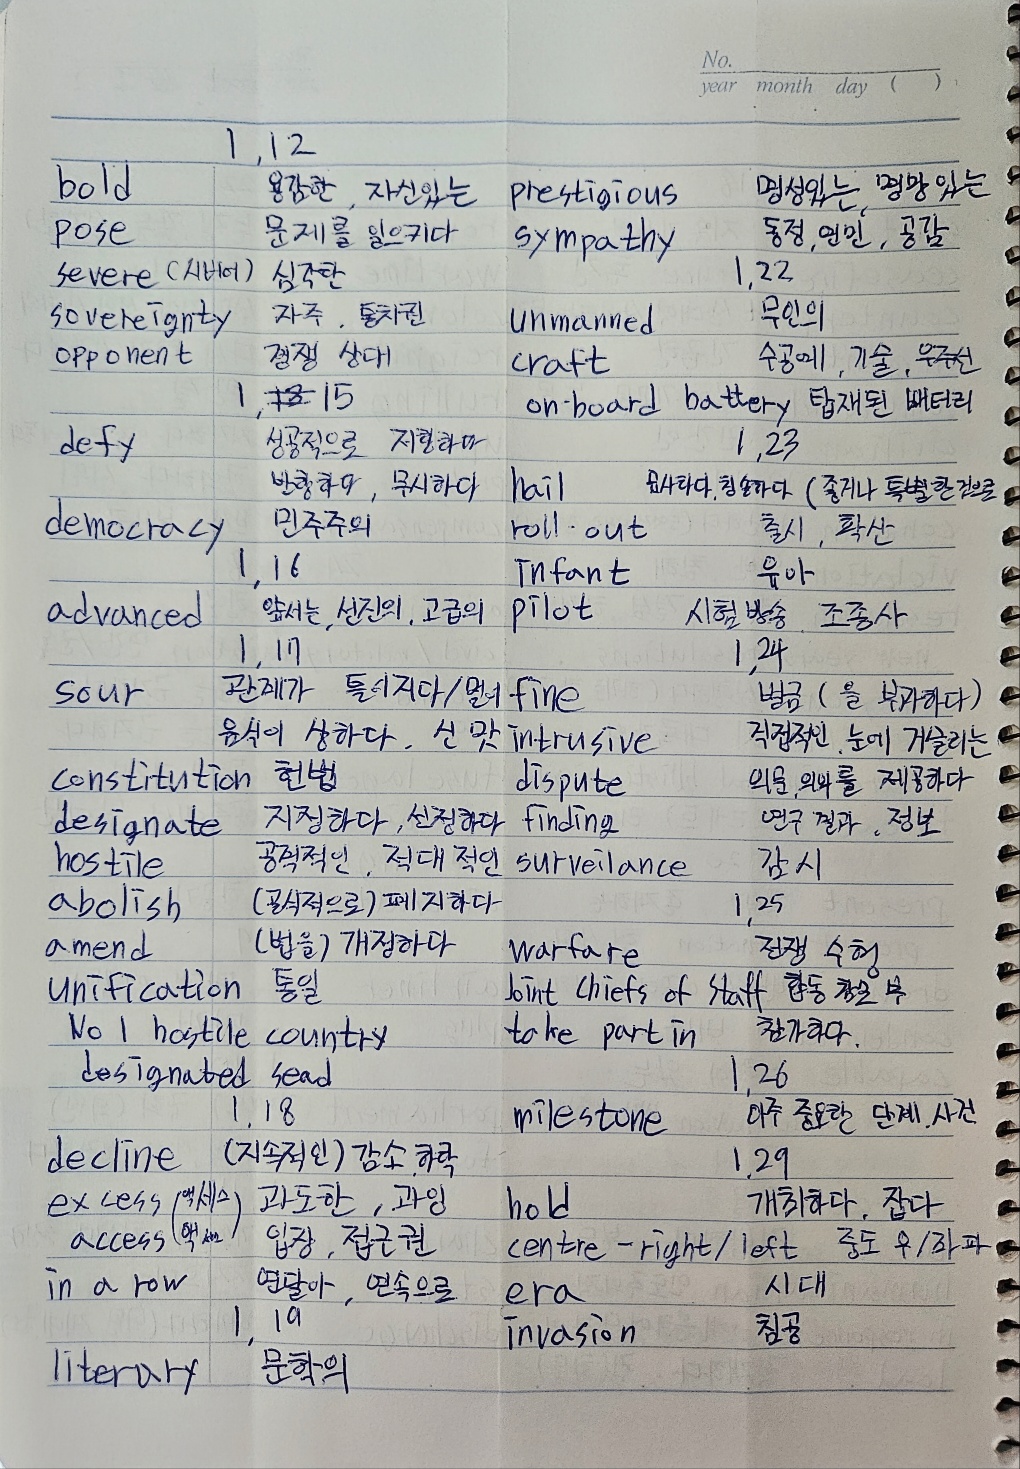 No.
year month day ( )
1,12
bold 용감한, 자신있는
pose 문제를 일으키다
severe (시비어) 심각한
sovereignty 자주, 통치권
opponent 경쟁 상대
1, 15
defy 성공적으로 저항하다
반항하다, 무시하다
democracy 민주주의
1,16
advanced 앞서는, 선진의, 고급의
1,17
sour 관계가 틀어지다/
음식이 상하다, 신 맛
constitution 헌법
designate 지정하다, 선정하다
hostile 공격적인, 적대적인
abolish (공식적으로) 폐지하다
amend (법을) 개정하다
unification 통일
No 1 hostile country
designated sead
1,18
decline (지속적인) 감소, 하락
excess (엑세스) 과도한, 과잉
access 입장, 접근권
in a row 연달아, 연속으로
1, 19
literary 문학의
prestigious 명성있는, 명망있는
sympathy 동정, 연민, 공감
1,22
unmanned 무인의
craft 수공예, 기술, 우주선
on-board battery 탑재된 배터리
1,23
hail 묘사하다, 칭송하다 (좋거나 특별한 것으로
roll-out 출시, 확산
infant 유아
pilot 시험 방송, 조종사
1,24
fine 벌금 (을 부과하다)
intrusive 직접적인, 눈에 거슬리는
dispute 의문, 의의를 제공하다
finding 연구 결과, 정보
surveilance 감시
1,25
warfare 전쟁 수행
Joint Chiefs of Staff 합동 참모부
take part in 참가하다.
1,26
milestone 아주 중요한 단계, 사건
1,29
hold 개최하다, 잡다
centre-right/left 중도 우/좌파
era 시대
invasion 침공